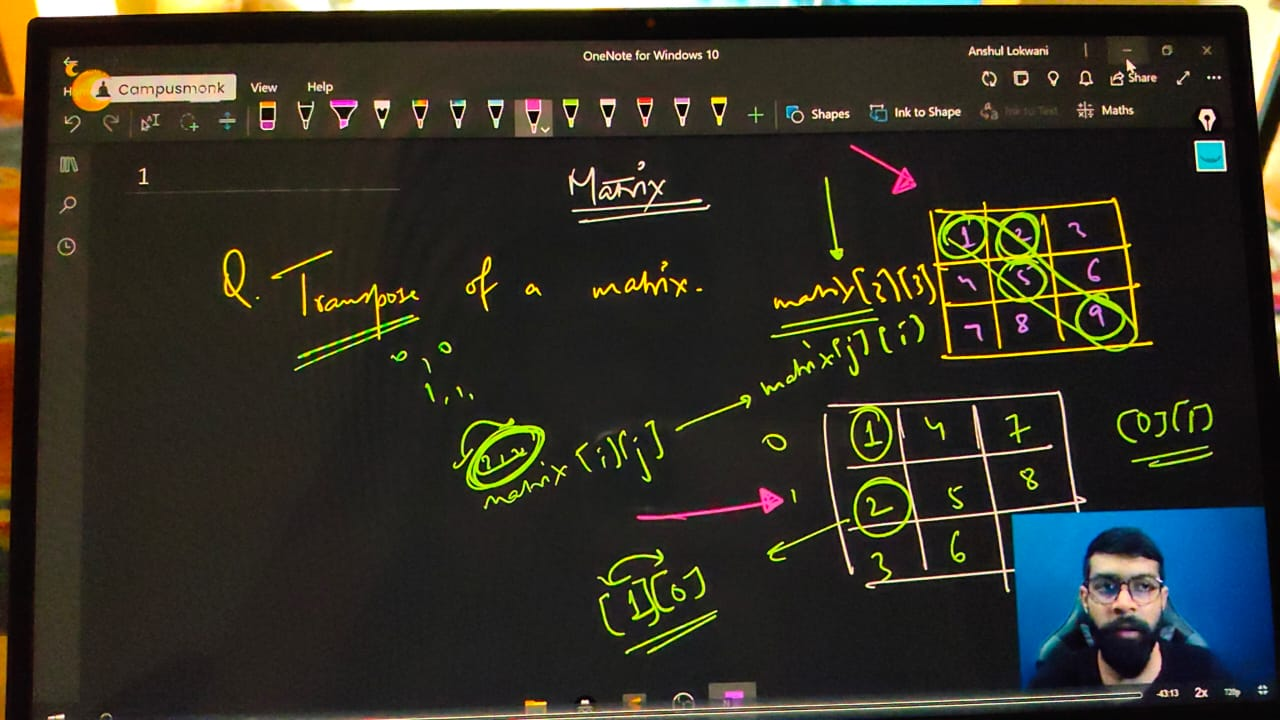 OneNote for Windows 10
Anshul Lokwani
Campusmonk
View
Help
Share
Shapes
Ink to Shape
Ink to Text
Maths
1
Matrix
Q. Transpose of a matrix.
matrix[i][j]
matrix[j][i]
1 2 3
4 5 6
7 8 9
0,0
1,1,
matrix[i][j]
0
1
1 4 7
2 5 8
3 6
[0][1]
[1][0]
-43:13
2x
720p